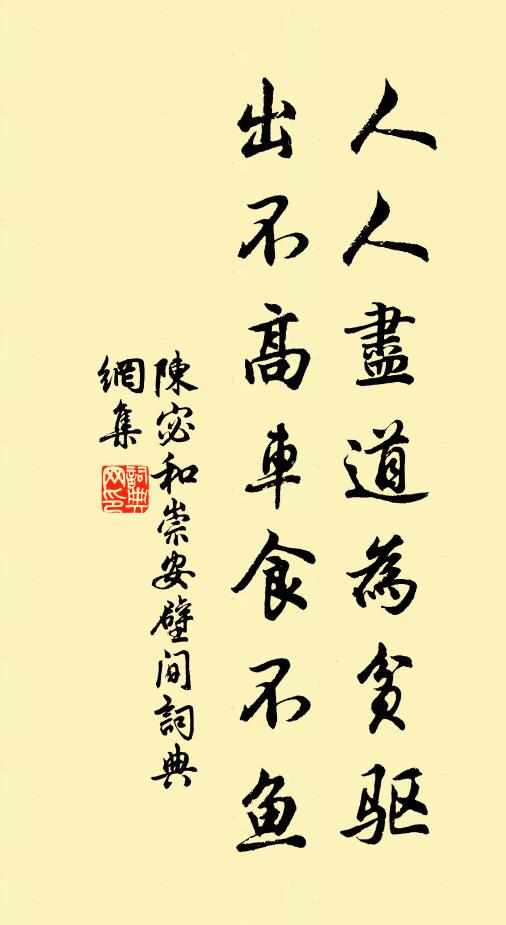 人人盡道為貧驱
出不高車食不鱼
陳宓和崇安壁间詞典
網集
詞典
网印